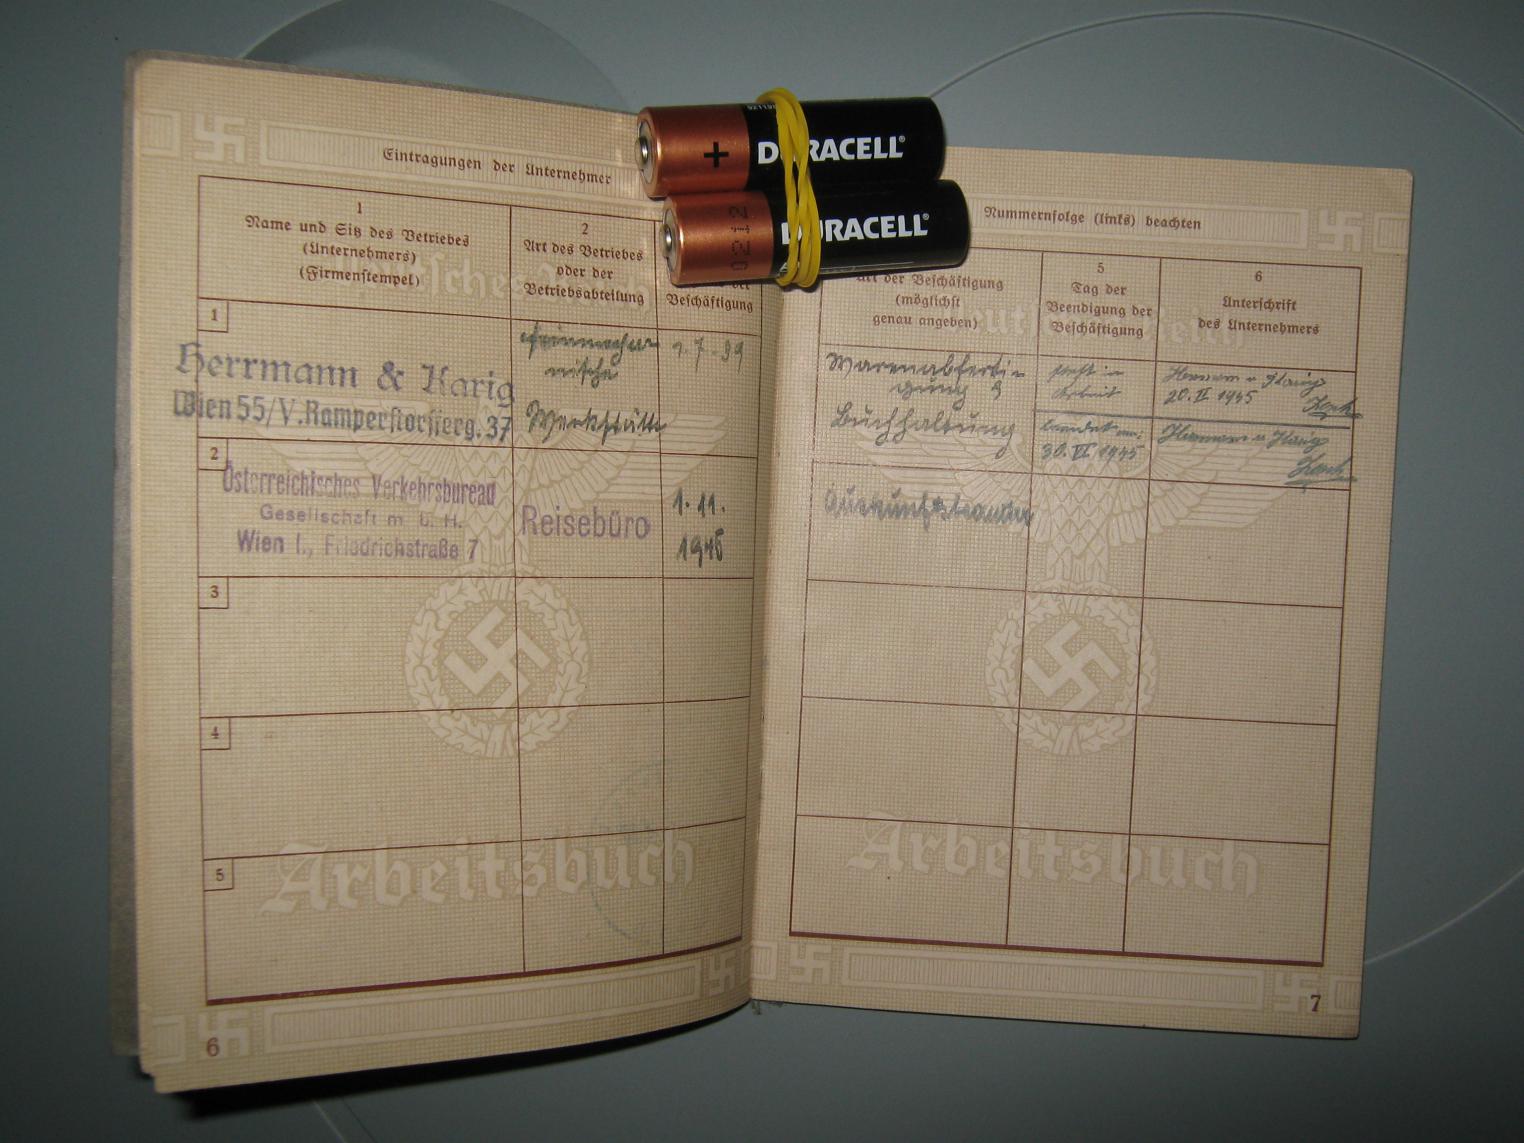 Eintragungen der Unternehmer
1
Name und Sitz des Betriebes
(Unternehmers)
(Firmenstempel)
2
Art des Betriebes
oder der
Betriebsabteilung
Beschäftigung
1
Herrmann & Karig
Wien 55/V. Ramperstorfferg. 37
Feinmecha-
nische
Werkstätte
1.7.39
2
Österreichisches Verkehrsbureau
Gesellschaft m. b. H.
Wien I., Friedrichstraße 7
Reisebüro
1.11.
1945
3
4
5
Deutsches Reich
Arbeitsbuch
6
+ DURACELL®
0212
DURACELL®
Nummernfolge (links) beachten
Art der Beschäftigung
(möglichst
genau angeben)
5
Tag der
Beendigung der
Beschäftigung
6
Unterschrift
des Unternehmers
Warenabferti-
gung &
Buchhaltung
steht in
Arbeit
20. II 1945
beendet am:
30. VI 1945
Auskunftsbeamter
Deutsches Reich
Arbeitsbuch
7